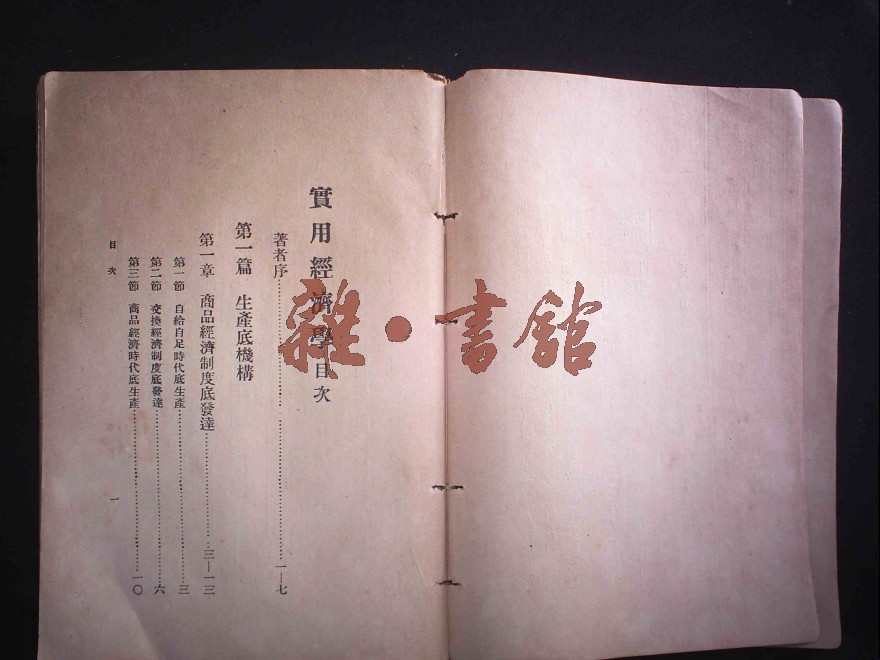 實用經濟學目次
著者序……一—七
第一篇 生產底機構
第一章 商品經濟制度底發達……三—一三
第一節 自給自足時代底生產……三
第二節 交換經濟制度底發達……六
第三節 商品經濟時代底生產……一〇
目次
一
雜·書館